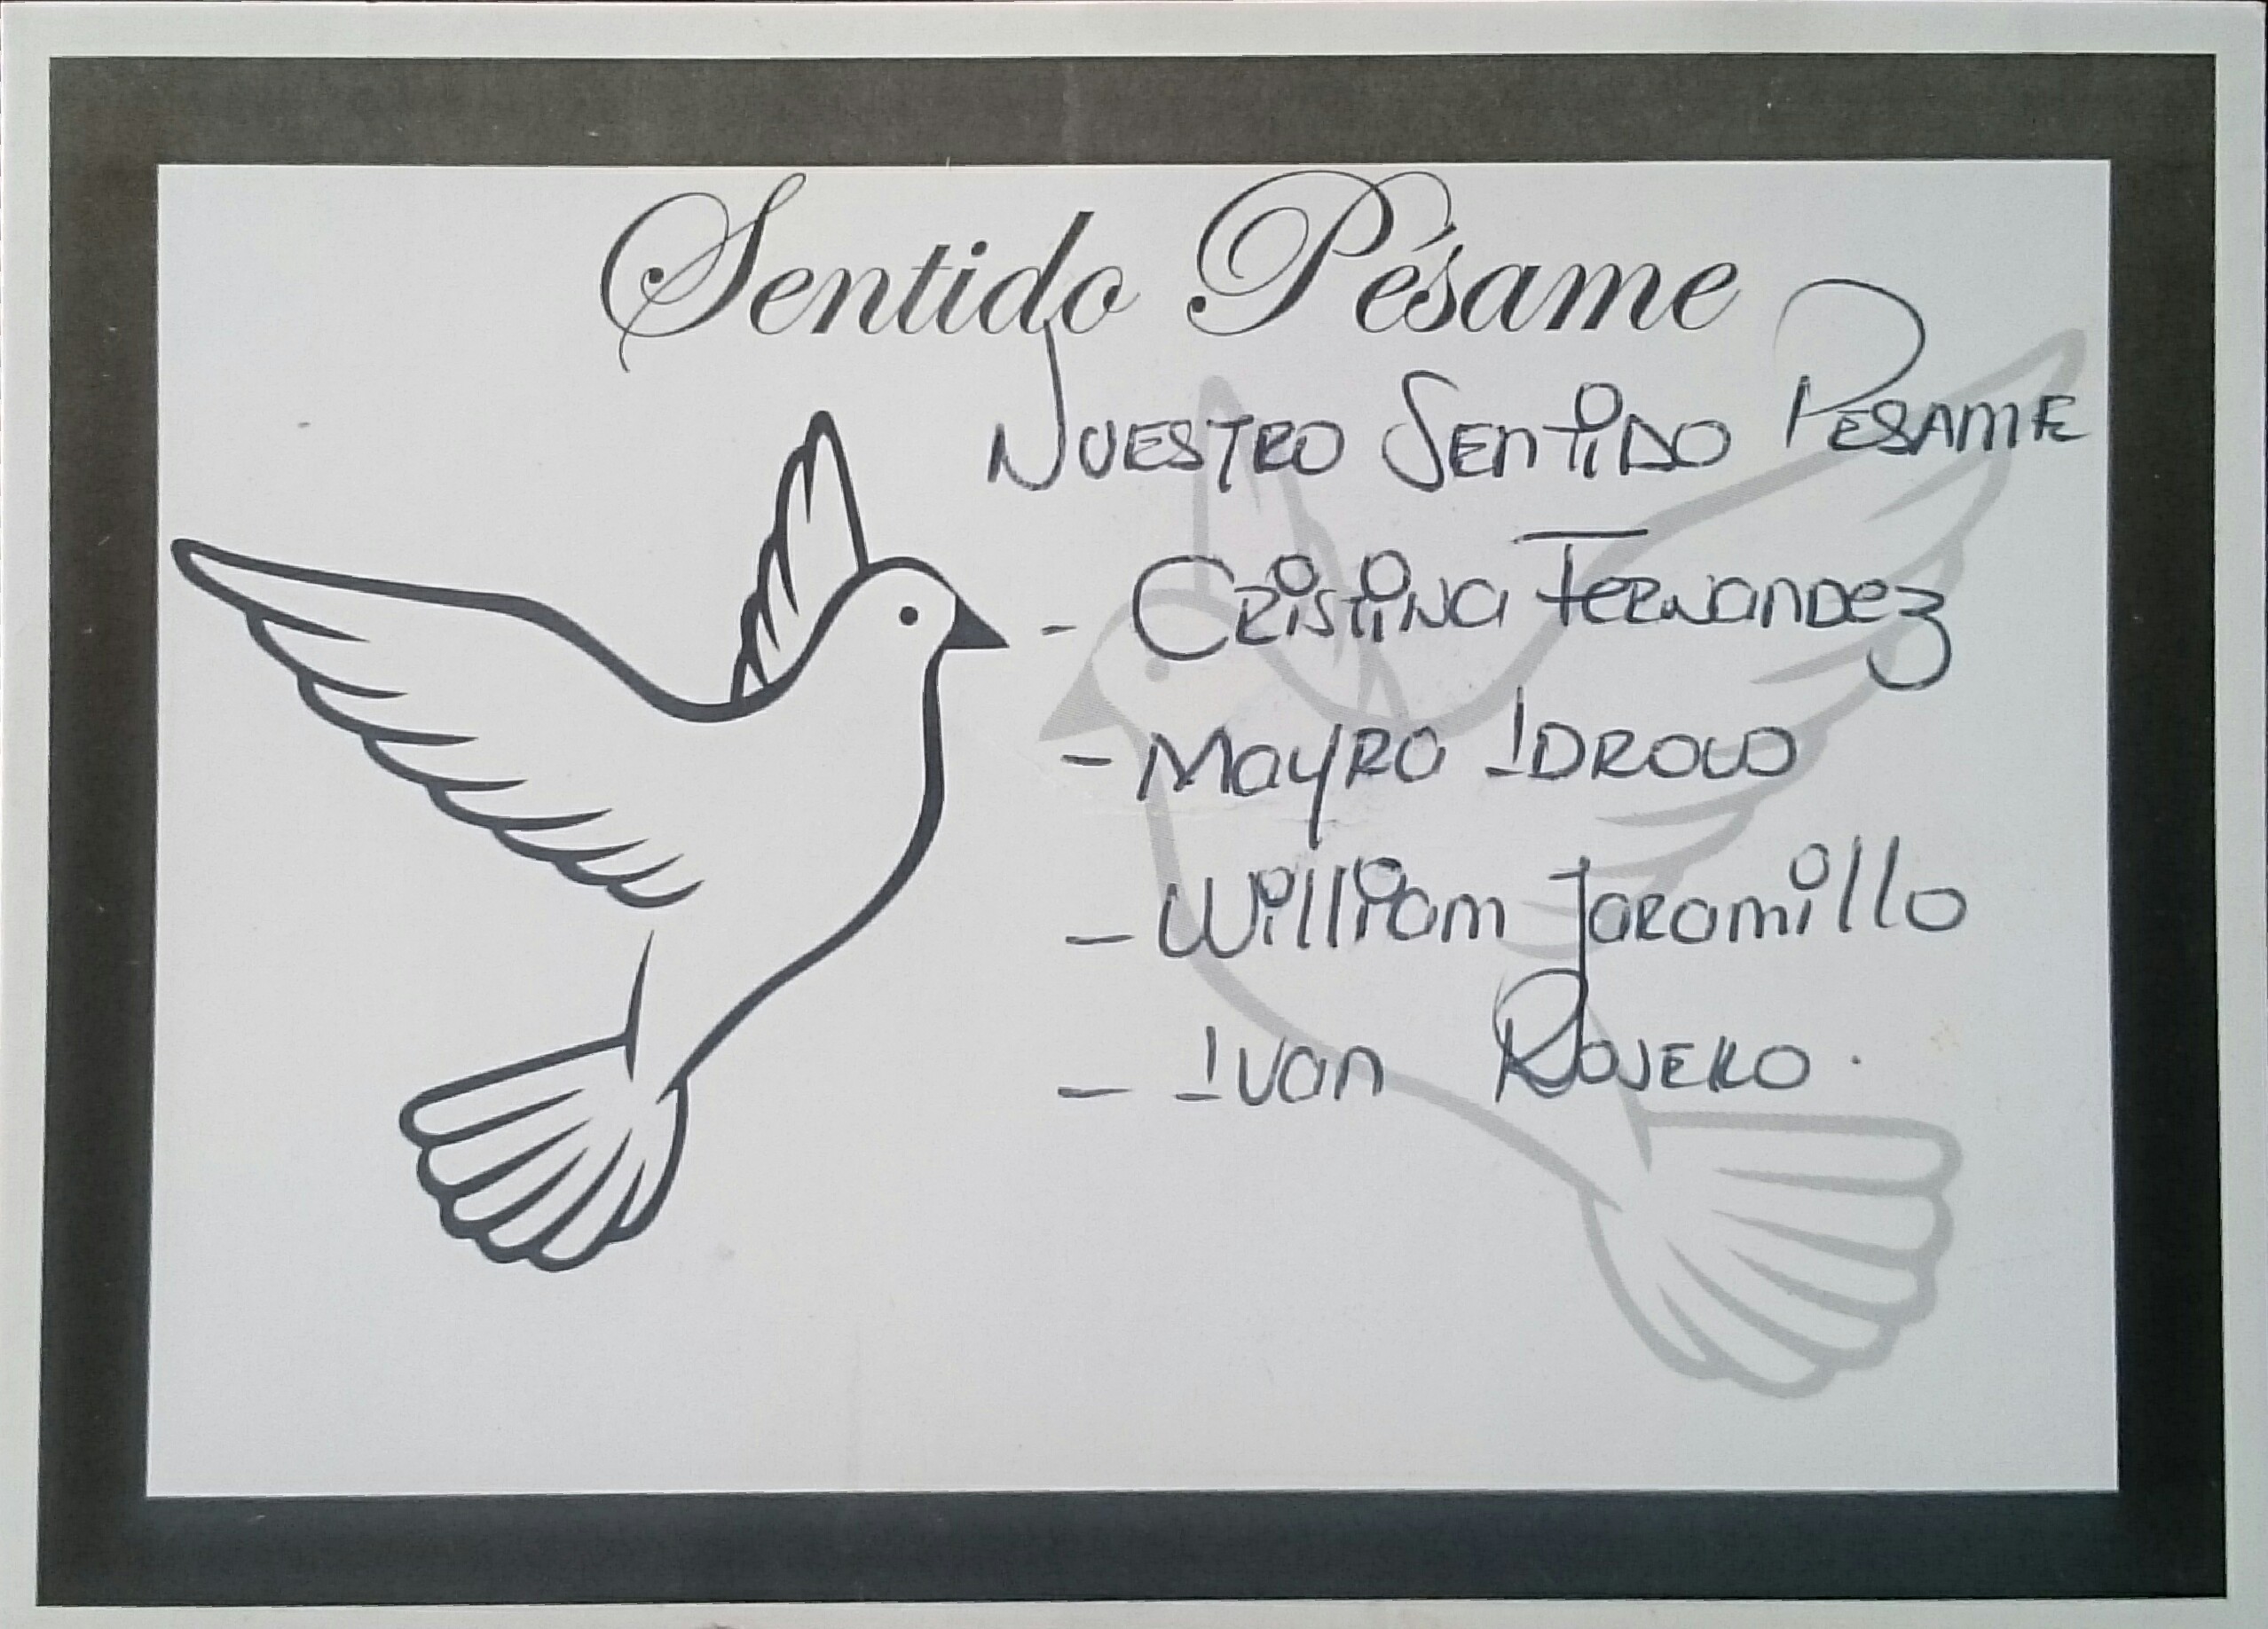 Sentido Pésame
NUESTRO SENTIDO PESAME
- CRISTINA FERNANDEZ
- MAYRA IDROVO
- William Jaramillo
- IVAN ROJERO.